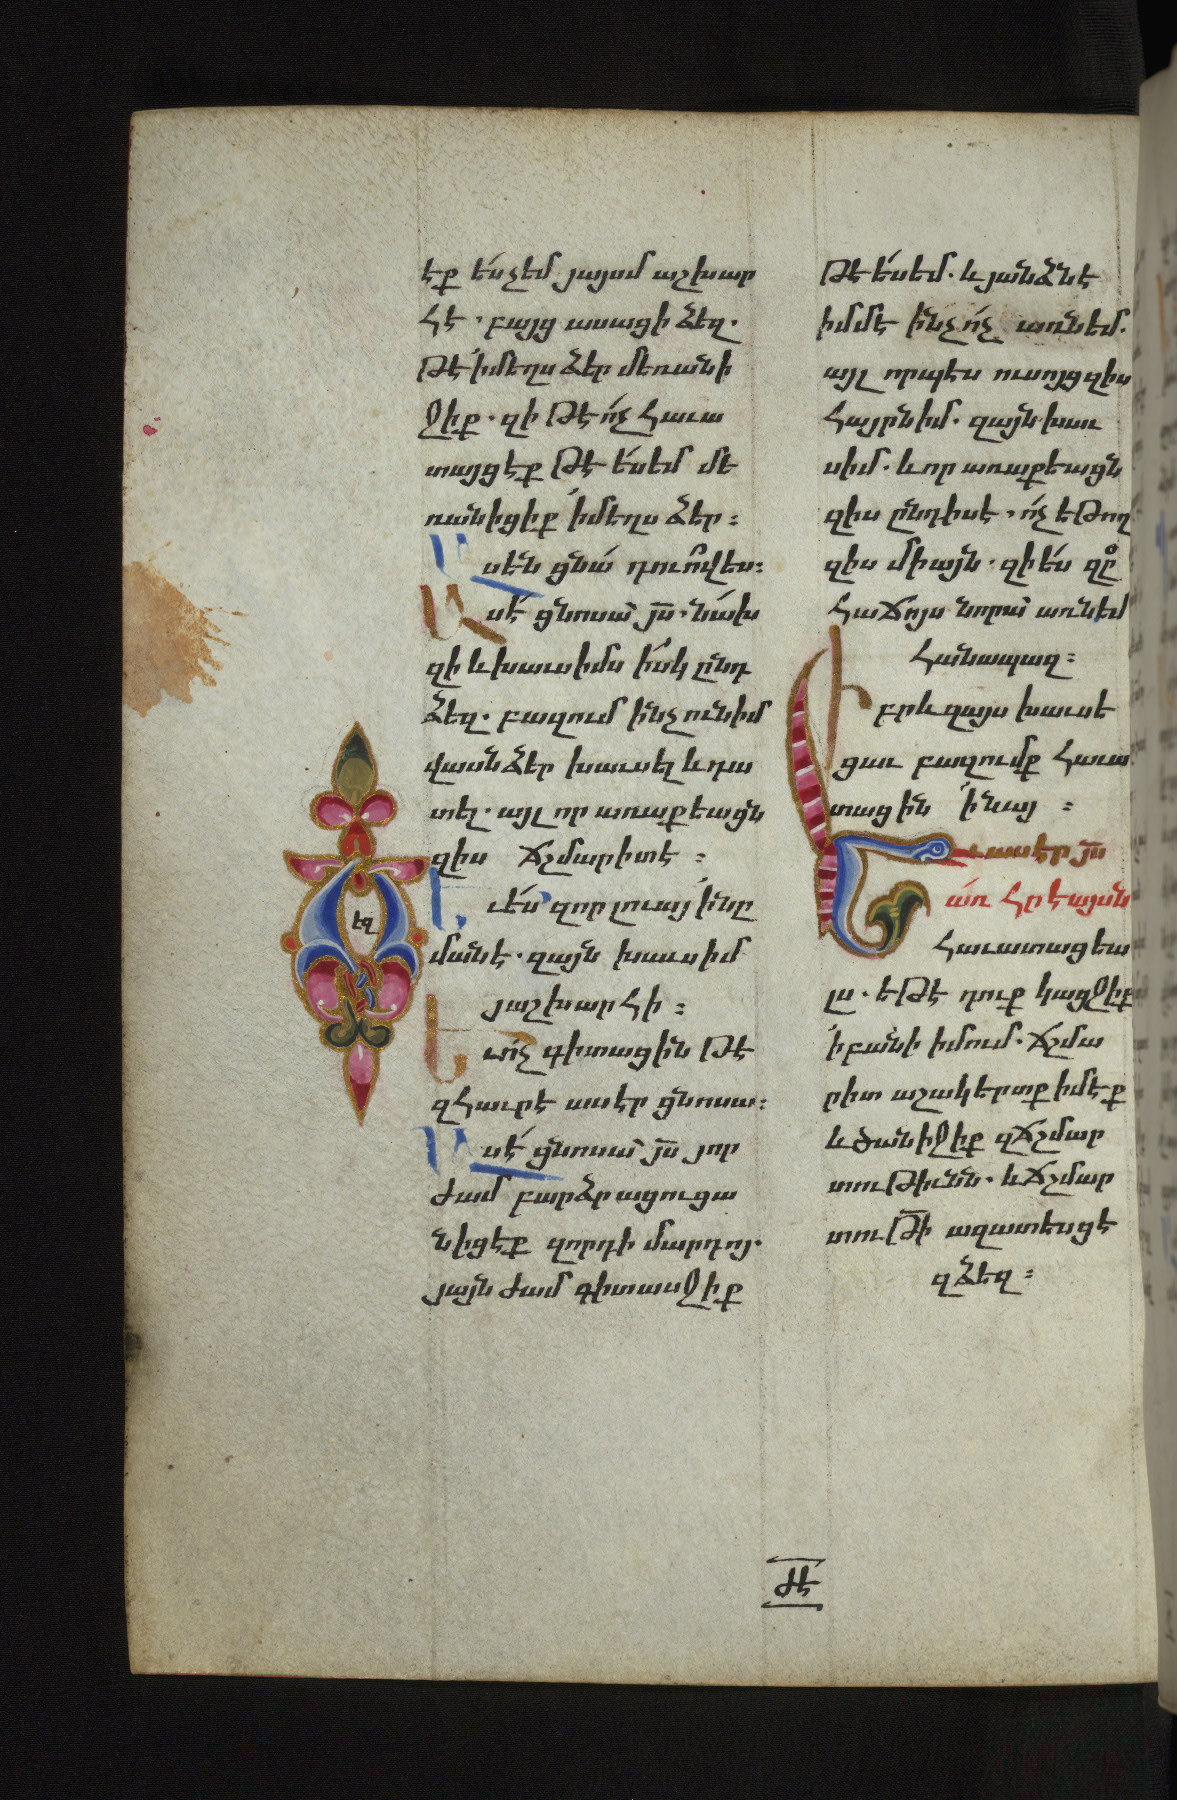 էք ես չեմ յայսմ աշխար
հէ. բայց ասացի ձեզ.
թէ՛ ի մեղս ձեր մեռանի
ջիք. զի թէ ո՛չ հաւա
տայցէք թէ ե՛ս եմ մե
ռանիցիք ՛ի մեղս ձեր։
Ասեն ցնա՛ դու ո՞վ ես։
Ասէ՛ ցնոսա յս. նա՛խ
զի և խաւսիմս իսկ ընդ
ձեզ. բազում ինչ ունիմ
վասն ձեր խաւսել և դա
տել. այլ որ առաքեացն
զիս ճշմարիտ է։
Եւ ե՛ս զոր լուայ ՛ի նը
մանէ. զայն խաւսիմ
յաշխարհի։
Եւ ո՛չ գիտացին թէ
զհաւրէ ասէր ցնոսա։
Ասէ՛ ցնոսա յս յոր
ժամ բարձրացուցա
նիցէք զորդի մարդոյ.
յայն ժամ գիտասջիք
եզ
թէ ե՛ս եմ. և յանձնէ
իմմէ ինչ ո՛չ առնեմ.
այլ որպէս ուսոյց զիս
հայրն իմ. զայն խաւ
սիմ. և որ առաքեացն
զիս ընդ իս է. ո՛չ եթող
զիս միայն. զի ե՛ս զը
հաճոյս նորա առնեմ
հանապազ։
Իբրև զայս խաւսե
ցաւ բազումք հաւա
տացին ՛ի նայ։
Եւ ասէր յս
առ հրէայսն
հաւատացեա
լս. եթէ դուք կացջիք
՛ի բանի իմում. ճշմա
րիտ աշակերտք իմ էք
և ծանիջիք զճշմար
տութիւնն. և ճշմար
տութի ազատեսցէ
զձեզ։
ԺԷ